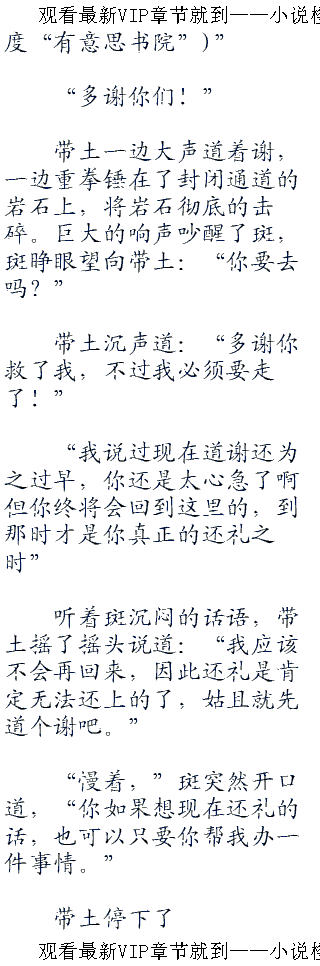 观看最新VIP章节就到——小说楼
度“有意思书院”)”
“多谢你们！”
带土一边大声道着谢，
一边重拳锤在了封闭通道的
岩石上，将岩石彻底的击
碎。巨大的响声吵醒了斑，
斑睁眼望向带土：“你要去
吗？”
带土沉声道：“多谢你
救了我，不过我必须要走
了！”
“我说过现在道谢还为
之过早，你还是太心急了啊
但你终将会回到这里的，到
那时才是你真正的还礼之
时”
听着斑沉闷的话语，带
土摇了摇头说道：“我应该
不会再回来，因此还礼是肯
定无法还上的了，姑且就先
道个谢吧。”
“慢着，”斑突然开口
道，“你如果想现在还礼的
话，也可以只要你帮我办一
件事情。”
带土停下了
观看最新VIP章节就到——小说楼